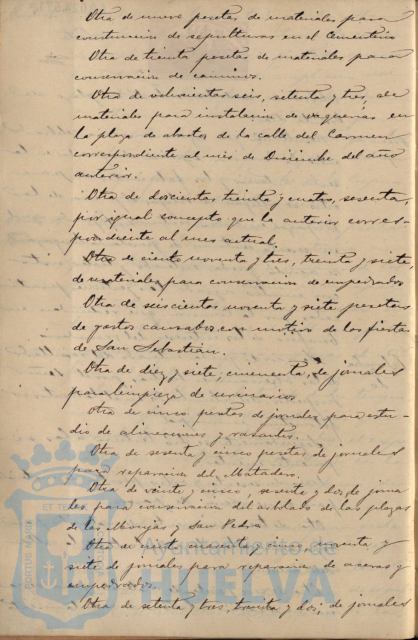 Otra de nueve pesetas de materiales para
construccion de sepulturas en el Cementerio
Otra de treinta pesetas de materiales para
conservacion de caminos.
Otra de ochocientas seis, setenta y tres, de
materiales para instalacion de en
la plaza de abastos de la calle del Carmen
correspondiente al mes de Diciembre del año
anterior.
Otra de doscientas treinta y cuatro, sesenta,
por igual concepto que la anterior corres-
pondiente al mes actual.
Otra de ciento noventa y tres, treinta y siete
de materiales para conservacion de empedrados
Otra de seiscientas noventa y siete pesetas
de gastos causados con motivo de las fiestas
de San Sebastian.
Otra de diez y siete, cincuenta, de jornales
para limpieza de urinarios.
Otra de cinco pesetas de jornales para estu-
dio de alineaciones y rasantes.
Otra de sesenta y cinco pesetas de jornales
para reparacion del Matadero.
Otra de veinte y cinco, sesenta y dos, de jorna
les, para conservacion del arbolado de las plazas
de las Monjas y San Pedro
Otra de ciento cincuenta y cinco, noventa y
siete de jornales para reparacion de aceras y
empedrados.
Otra de setenta y tres, treinta y dos, de jornales
PORTUS MARIS
ET TE
Ayuntamiento de
HUELVA